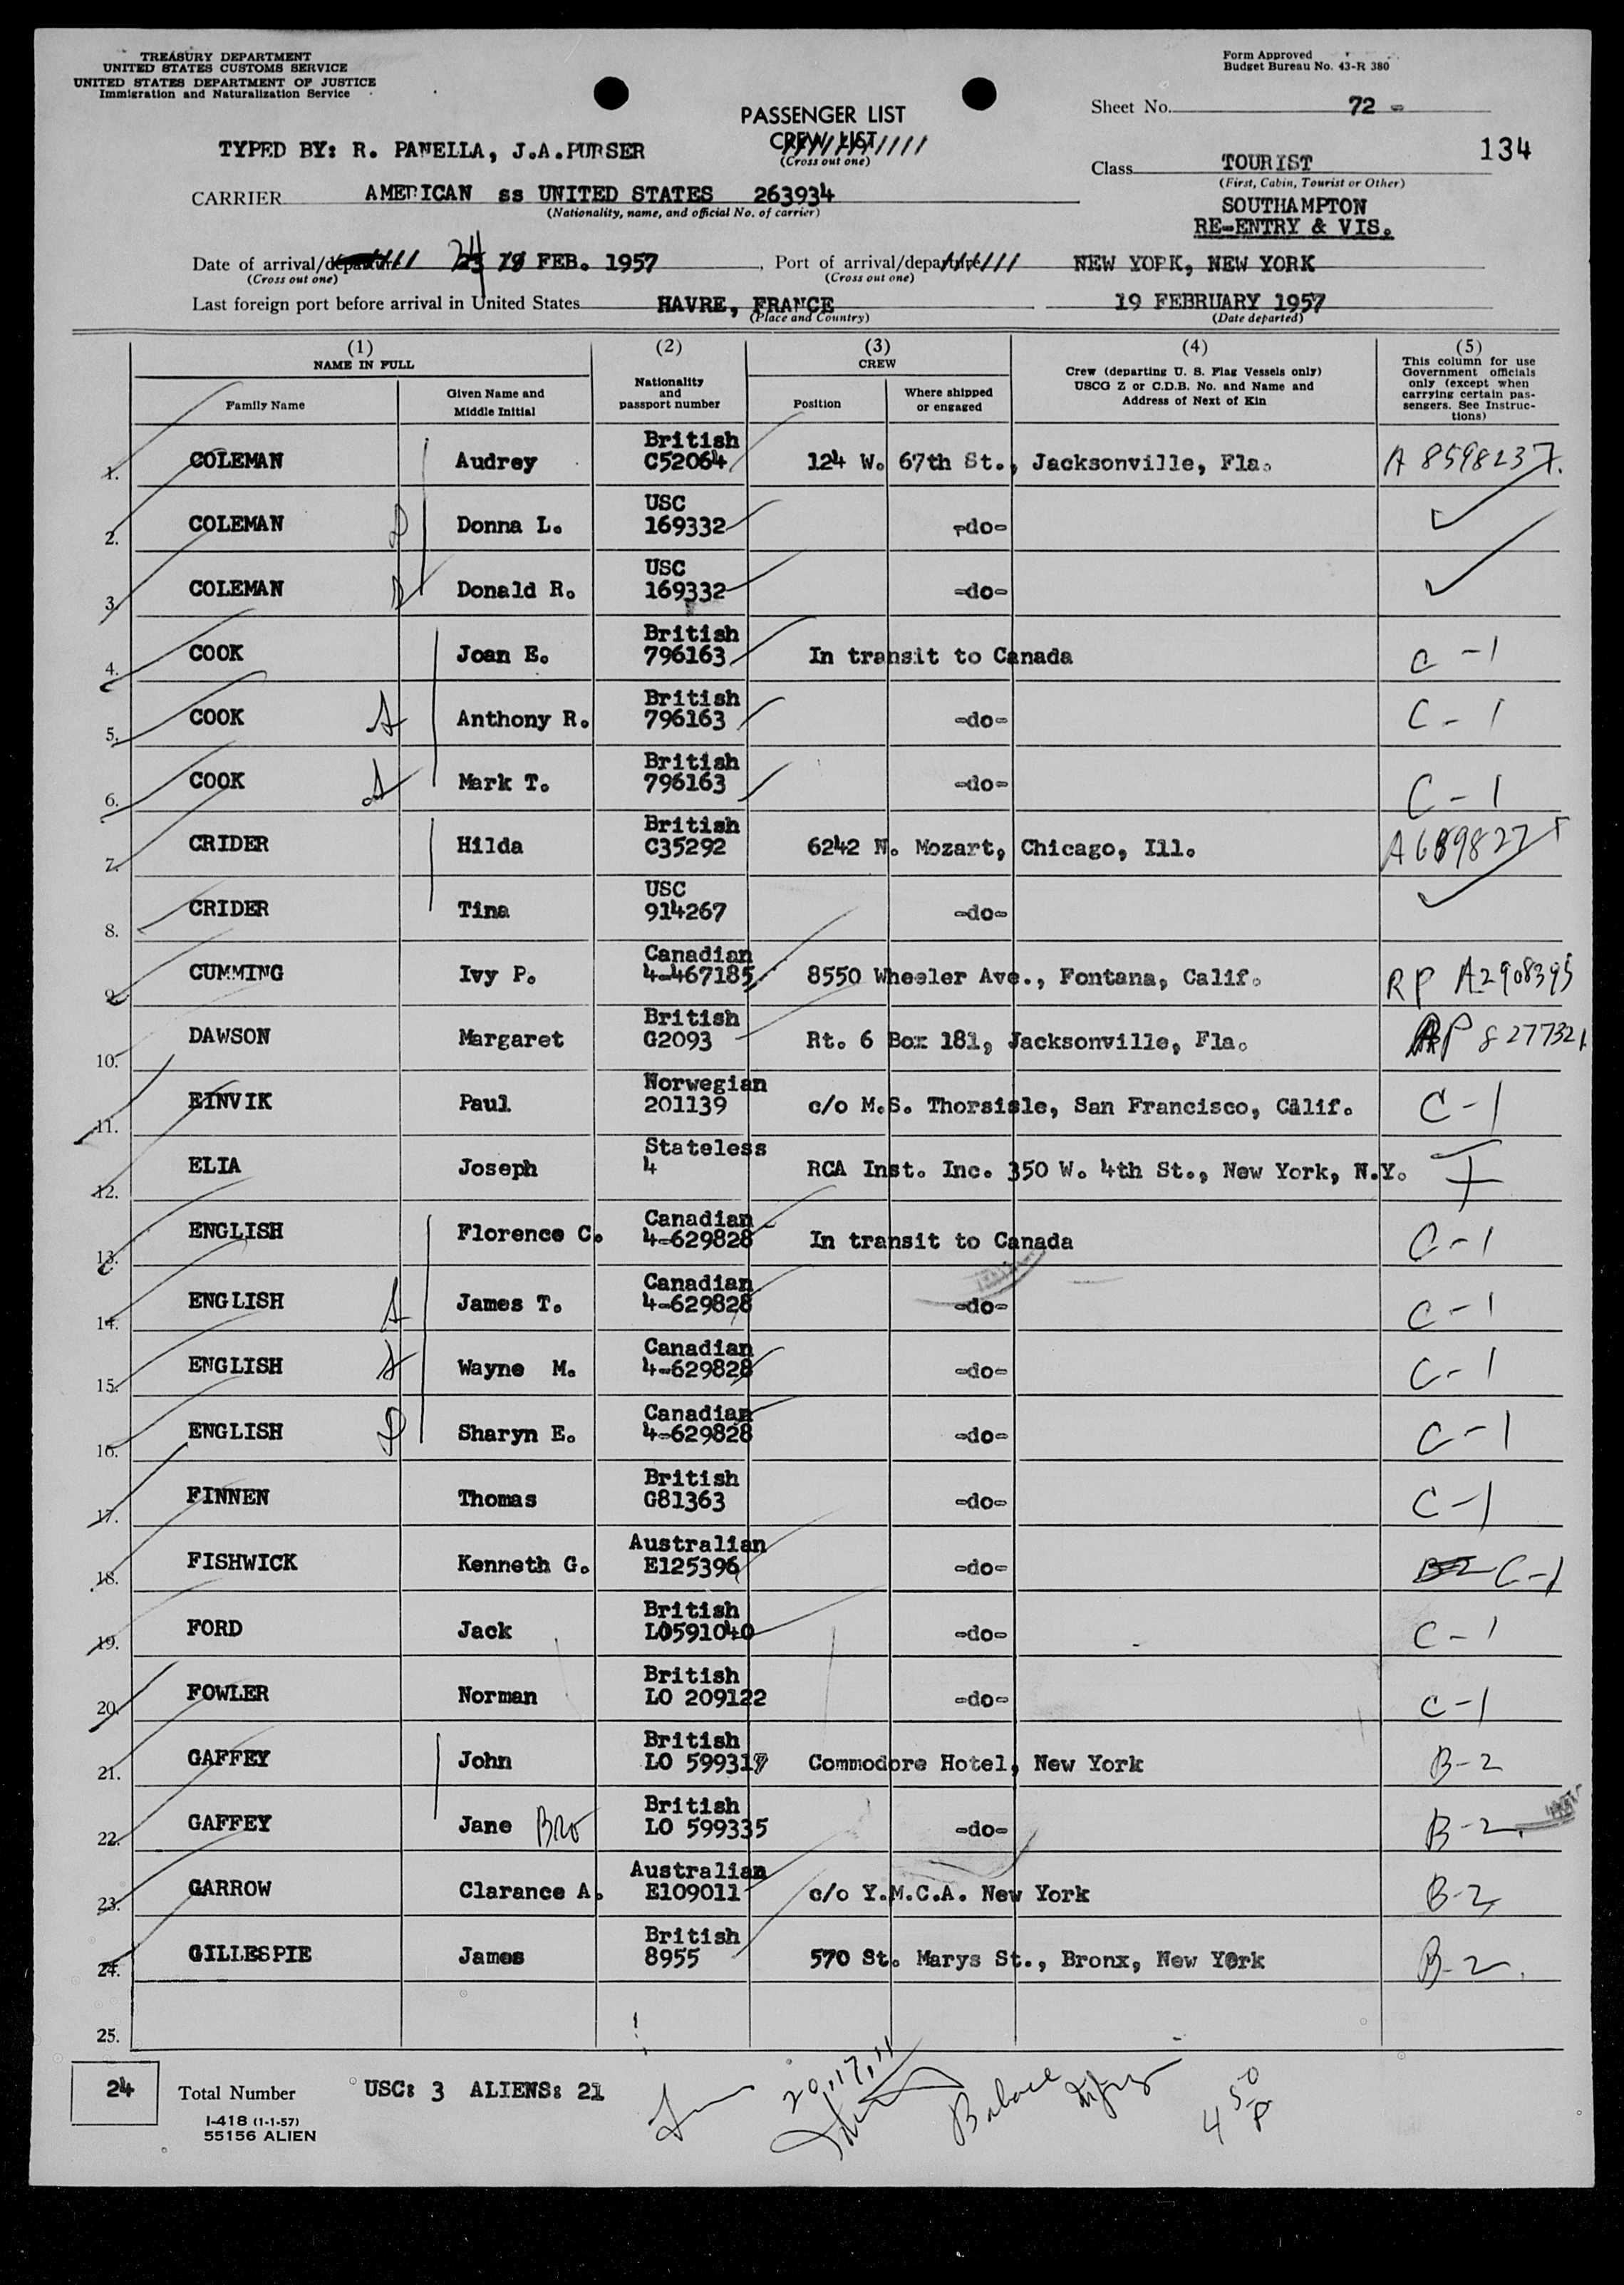 TREASURY DEPARTMENT
UNITED STATES CUSTOMS SERVICE
UNITED STATES DEPARTMENT OF JUSTICE
Immigration and Naturalization Service
Form Approved
Budget Bureau No. 43-R 380
PASSENGER LIST
CREW LIST
(Cross out one)
Sheet No. 72 -
134
TYPED BY: R. PANELLA, J.A.PURSER
Class TOURIST
(First, Cabin, Tourist or Other)
CARRIER AMERICAN ss UNITED STATES 263934
(Nationality, name, and official No. of carrier)
SOUTHAMPTON
RE-ENTRY & VIS.
Date of arrival/departure 24 FEB. 1957, Port of arrival/departure NEW YORK, NEW YORK
(Cross out one) (Cross out one)
Last foreign port before arrival in United States HAVRE, FRANCE 19 FEBRUARY 1957
(Place and Country) (Date departed)
(1) NAME IN FULL
Family Name
Given Name and Middle Initial
(2) Nationality and passport number
(3) CREW
Position
Where shipped or engaged
(4) Crew (departing U. S. Flag Vessels only) USCG Z or C.D.B. No. and Name and Address of Next of Kin
(5) This column for use Government officials only (except when carrying certain passengers. See Instructions)
1. COLEMAN Audrey British C52064 124 W. 67th St., Jacksonville, Fla. A 8598237
2. COLEMAN D Donna L. USC 169332 -do-
3. COLEMAN Donald R. USC 169332 -do-
4. COOK Joan E. British 796163 In transit to Canada C-1
5. COOK S Anthony R. British 796163 -do- C-1
6. COOK S Mark T. British 796163 -do- C-1
7. CRIDER Hilda British C35292 6242 N. Mozart, Chicago, Ill.
8. CRIDER Tina USC 914267 -do-
9. CUMMING Ivy P. Canadian 4-467185 8550 Wheeler Ave., Fontana, Calif. RP A2908395
10. DAWSON Margaret British G2093 Rt. 6 Box 181, Jacksonville, Fla. RP 8277321
11. EINVIK Paul Norwegian 201139 c/o M.S. Thorsisle, San Francisco, Calif. C-1
12. ELIA Joseph Stateless 4 RCA Inst. Inc. 350 W. 4th St., New York, N.Y. F
13. ENGLISH Florence C. Canadian 4-629828 In transit to Canada C-1
14. ENGLISH S James T. Canadian 4-629828 -do- C-1
15. ENGLISH S Wayne M. Canadian 4-629828 -do- C-1
16. ENGLISH D Sharyn E. Canadian 4-629828 -do- C-1
17. FINNEN Thomas British G81363 -do- C-1
18. FISHWICK Kenneth G. Australian E125396 -do- B-2 C-1
19. FORD Jack British LO591040 -do- C-1
20. FOWLER Norman British LO 209122 -do- C-1
21. GAFFEY John British LO 599317 Commodore Hotel, New York B-2
22. GAFFEY Jane Bro British LO 599335 -do- B-2
23. GARROW Clarance A. Australian E109011 c/o Y.M.C.A. New York B-2
24. GILLESPIE James British 8955 570 St. Marys St., Bronx, New York B-2
25.
24 Total Number USC: 3 ALIENS: 21
I-418 (1-1-57)
55156 ALIEN
20, 17, 11
4 50 P